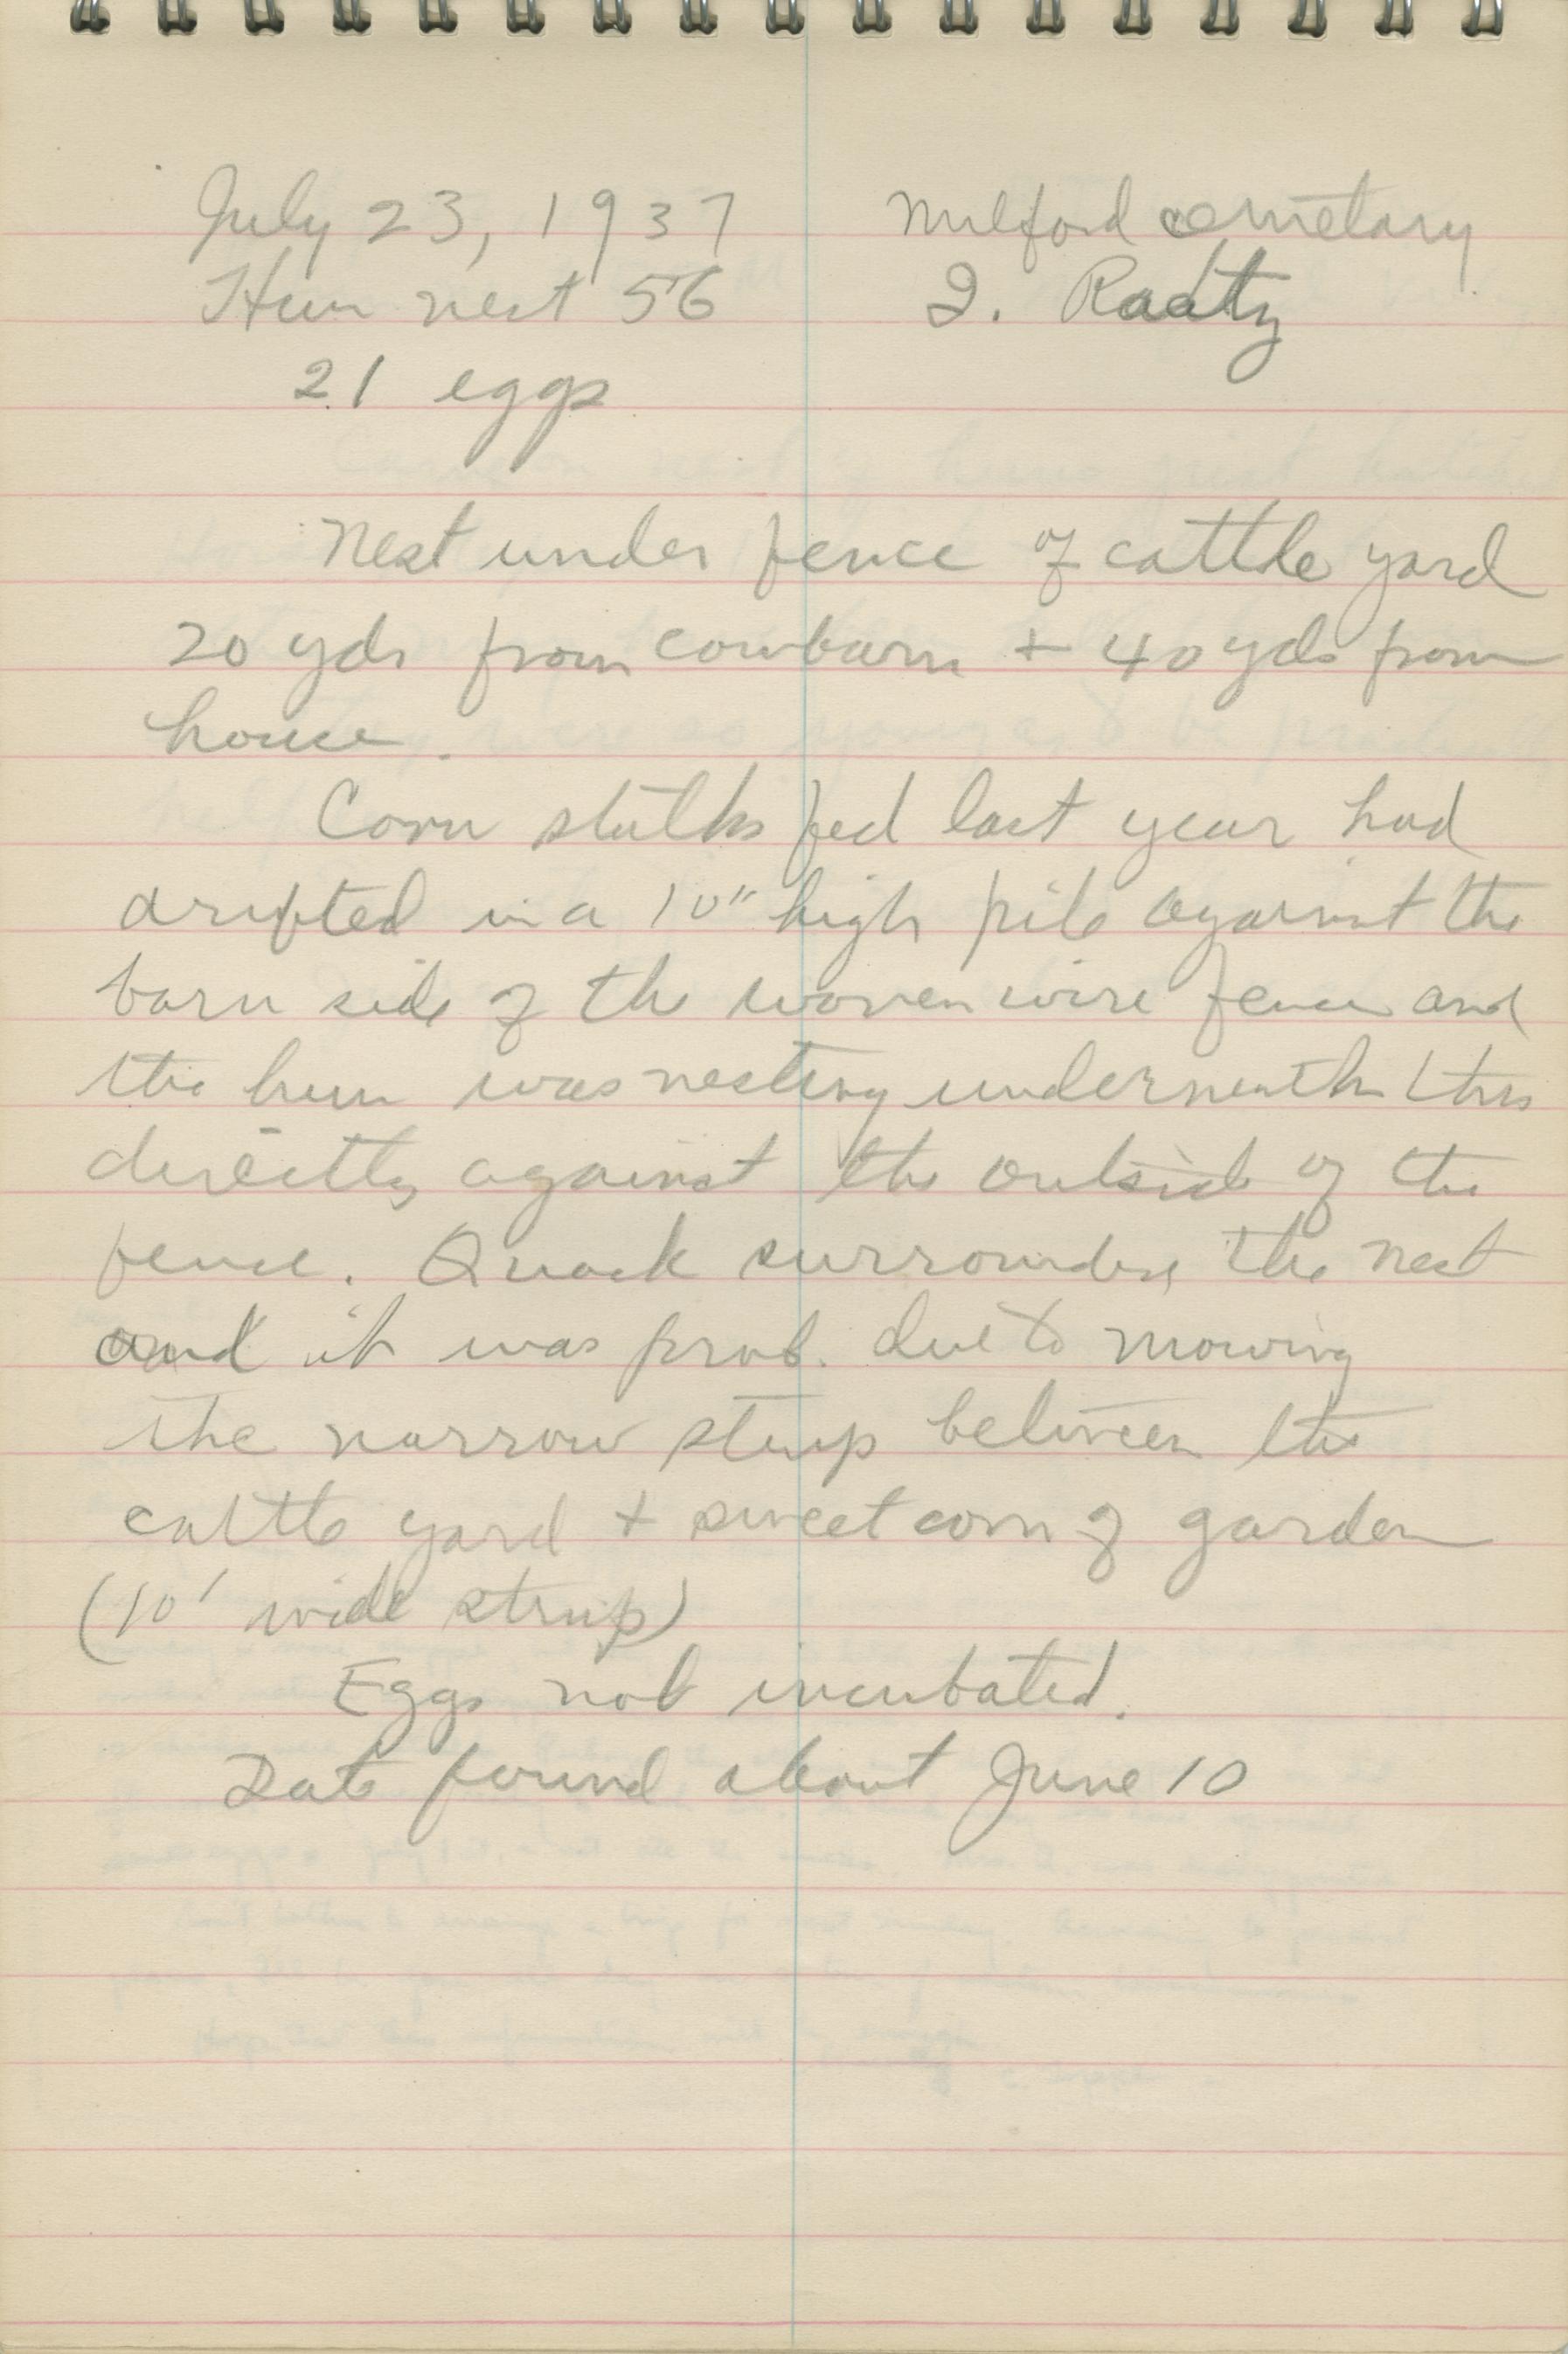 July 23, 1937 Milford cemetary
Hun nest 56 I. Raatz
21 eggs
Nest under fence of cattle yard
20 yds from cowbarn + 40 yds from
house.
Corn stalks fed last year had
drifted in a 10" high pile against the
barn side of the woven wire fence and
the hun was nesting underneath this
directly against the outside of the
fence. Quack surrounding the nest
and it was prob. due to mowing
the narrow strip between the
cattle yard + sweet corn of garden
(10' wide strip)
Eggs not incubated.
Date found about June 10